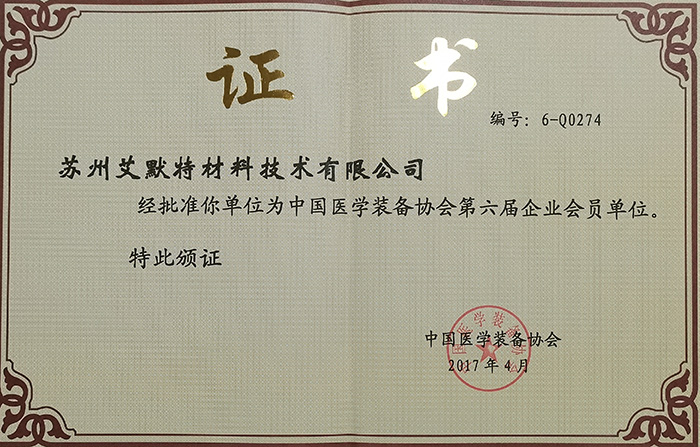 证 书
编号：6-Q0274
苏州艾默特材料技术有限公司
经批准你单位为中国医学装备协会第六届企业会员单位。
特此颁证
中国医学装备协会
2017年4月
中国医学装备协会